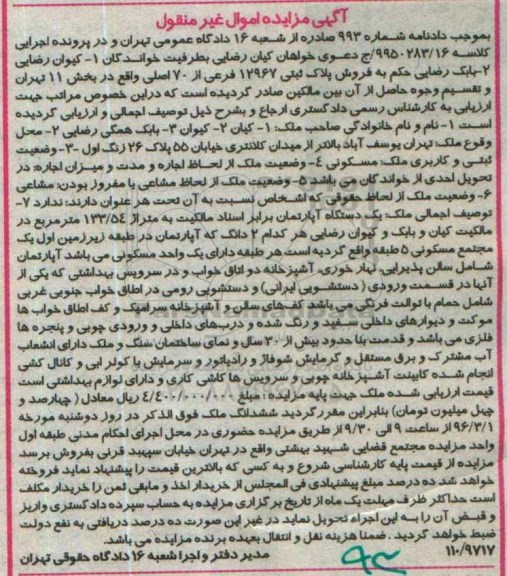 آگهی مزایده اموال غیر منقول
بموجب دادنامه شماره ۹۹۳ صادره از شعبه ۱۶ دادگاه عمومی تهران و در پرونده اجرایی
کلاسه ۹۹۵۰۲۸۳/۱۶/ج دعوی خواهان کیان رضایی بطرفیت خواندگان ۱- کیوان رضایی
۲-بابک رضایی حکم به فروش پلاک ثبتی ۱۲۹۶۷ فرعی از ۷۰ اصلی واقع در بخش ۱۱ تهران
و تقسیم وجوه حاصل از آن بین مالکین صادر گردیده است که دراین خصوص مراتب جهت
ارزیابی به کارشناس رسمی دادگستری ارجاع و بشرح ذیل توصیف اجمالی و ارزیابی گردیده
است ۱- نام و نام خانوادگی صاحب ملک: ۱- کیان ۲- کیوان ۳- بابک همگی رضایی ۲- محل
وقوع ملک: تهران یوسف آباد بالاتر از میدان کلانتری خیابان ۵۵ پلاک ۲۶ زنگ اول -۳- وضعیت
ثبتی و کاربری ملک: مسکونی ۴- وضعیت ملک از لحاظ اجاره و مدت و میزان اجاره: در
تحویل احدی از خواندگان می باشد ۵- وضعیت ملک از لحاظ مشاعی یا مفروز بودن: مشاعی
۶- وضعیت ملک از لحاظ حقوقی که اشخاص نسبت به آن تحت هر عنوان دارند: ندارد ۷-
توصیف اجمالی ملک: یک دستگاه آپارتمان برابر اسناد مالکیت به متراژ ۱۳۳/۵۴ مترمربع در
مالکیت کیان و بابک و کیوان رضایی هر کدام ۲ دانگ که آپارتمان در طبقه زیرزمین اول یک
مجتمع مسکونی ۵ طبقه واقع گردیده است هر طبقه دارای یک واحد مسکونی می باشد آپارتمان
شامل سالن پذیرایی، نهار خوری، آشپزخانه دو اتاق خواب و در سرویس بهداشتی که یکی از
آنها در قسمت ورودی ( دستشویی ایرانی) و دستشویی رومی در اطاق خواب جنوبی غربی
شامل حمام با توالت فرنگی می باشد کف های سالن و آشپزخانه سرامیک و کف اطاق خواب ها
موکت و دیوارهای داخلی سفید و رنگ شده و درب‌های داخلی و ورودی چوبی و پنجره ها
فلزی می باشد و قدمت بنا حدود بیش از ۳۰ سال و نمای ساختمان سنگ و ملک دارای انشعاب
آب مشترک و برق مستقل و گرمایش شوفاژ و رادیاتور و سرمایش با کولر ابی و کانال کشی
انجام شده کابینت آشپزخانه چوبی و سرویس ها کاشی کاری و دارای لوازم بهداشتی است
قیمت ارزیابی شده ملک جهت پایه مزایده : مبلغ ۴/۴۰۰/۰۰۰/۰۰۰ ریال معادل ( چهارصد و
چهل میلیون تومان) بنابراین مقرر گردید ششدانگ ملک فوق الذکر در روز دوشنبه مورخه
۹۶/۳/۱ از ساعت ۹ الی ۹/۳۰ از طریق مزایده حضوری در محل اجرای احکام مدنی طبقه اول
واحد مزایده مجتمع قضایی شهید بهشتی واقع در تهران خیابان سپهبد قرنی بفروش برسد
مزایده از قیمت پایه کارشناسی شروع و به کسی که بالاترین قیمت را پیشنهاد نماید فروخته
خواهد شد ده درصد مبلغ پیشنهادی فی المجلس از خریدار اخذ و مابقی ثمن را خریدار مکلف
است حداکثر ظرف مهلت یک ماه از تاریخ برگزاری مزایده به حساب سپرده دادگستری واریز
و قبض آن را به این اجراء تحویل نماید در غیر این صورت ده درصد دریافتی به نفع دولت
ضبط خواهد گردید . ضمنا هزینه نقل و انتقال بعهده برنده مزایده می باشد.
۱۱۰/۹۷۱۷ مدیر دفتر و اجرا شعبه ۱۶ دادگاه حقوقی تهران